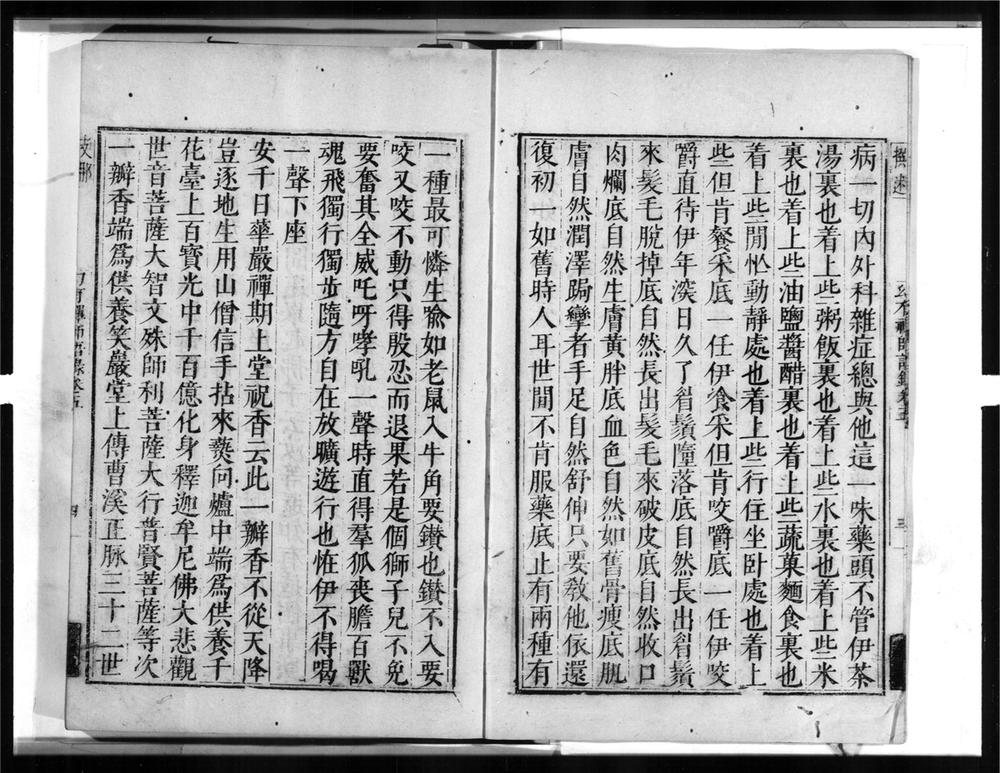 病一切內外科雜症總與他這一味藥頭不管伊茶
湯裏也着上些粥飯裏也着上些水裏也着上些米
裏也着上些油鹽醬醋裏也着上些蔬菓麵食裏也
着上些閒忙動靜處也着上些行住坐卧處也着上
些但肯餐采底一任伊食采但肯咬嚼底一任伊咬
嚼直待伊年深日久了眉鬚墮落底自然長出眉鬚
來髮毛脫掉底自然長出髮毛來破皮底自然收口
肉爛底自然生膚黃胖底血色自然如舊骨瘦底肌
膚自然潤澤跼攣者手足自然舒伸只要教他依還
復初一如舊時人耳世間不肯服藥底止有兩種有
一種最可憐生喻如老鼠入牛角要鑚也鑚不入要
咬又咬不動只得殷忍而退果若是個獅子兒不免
要奮其全威吒呀哮吼一聲時直得羣狐喪膽百獸
魂飛獨行獨步隨方自在放曠遊行也恠伊不得喝
一聲下座
安千日華嚴禪期上堂祝香云此一瓣香不從天降
豈逐地生用山僧信手拈來爇向爐中端爲供養千
花臺上百寶光中千百億化身釋迦牟尼佛大悲觀
世音菩薩大智文殊師利菩薩大行普賢菩薩等次
一瓣香端爲供養笑嚴堂上傳曹溪正脉三十二世
支那
禪師語錄卷五
四